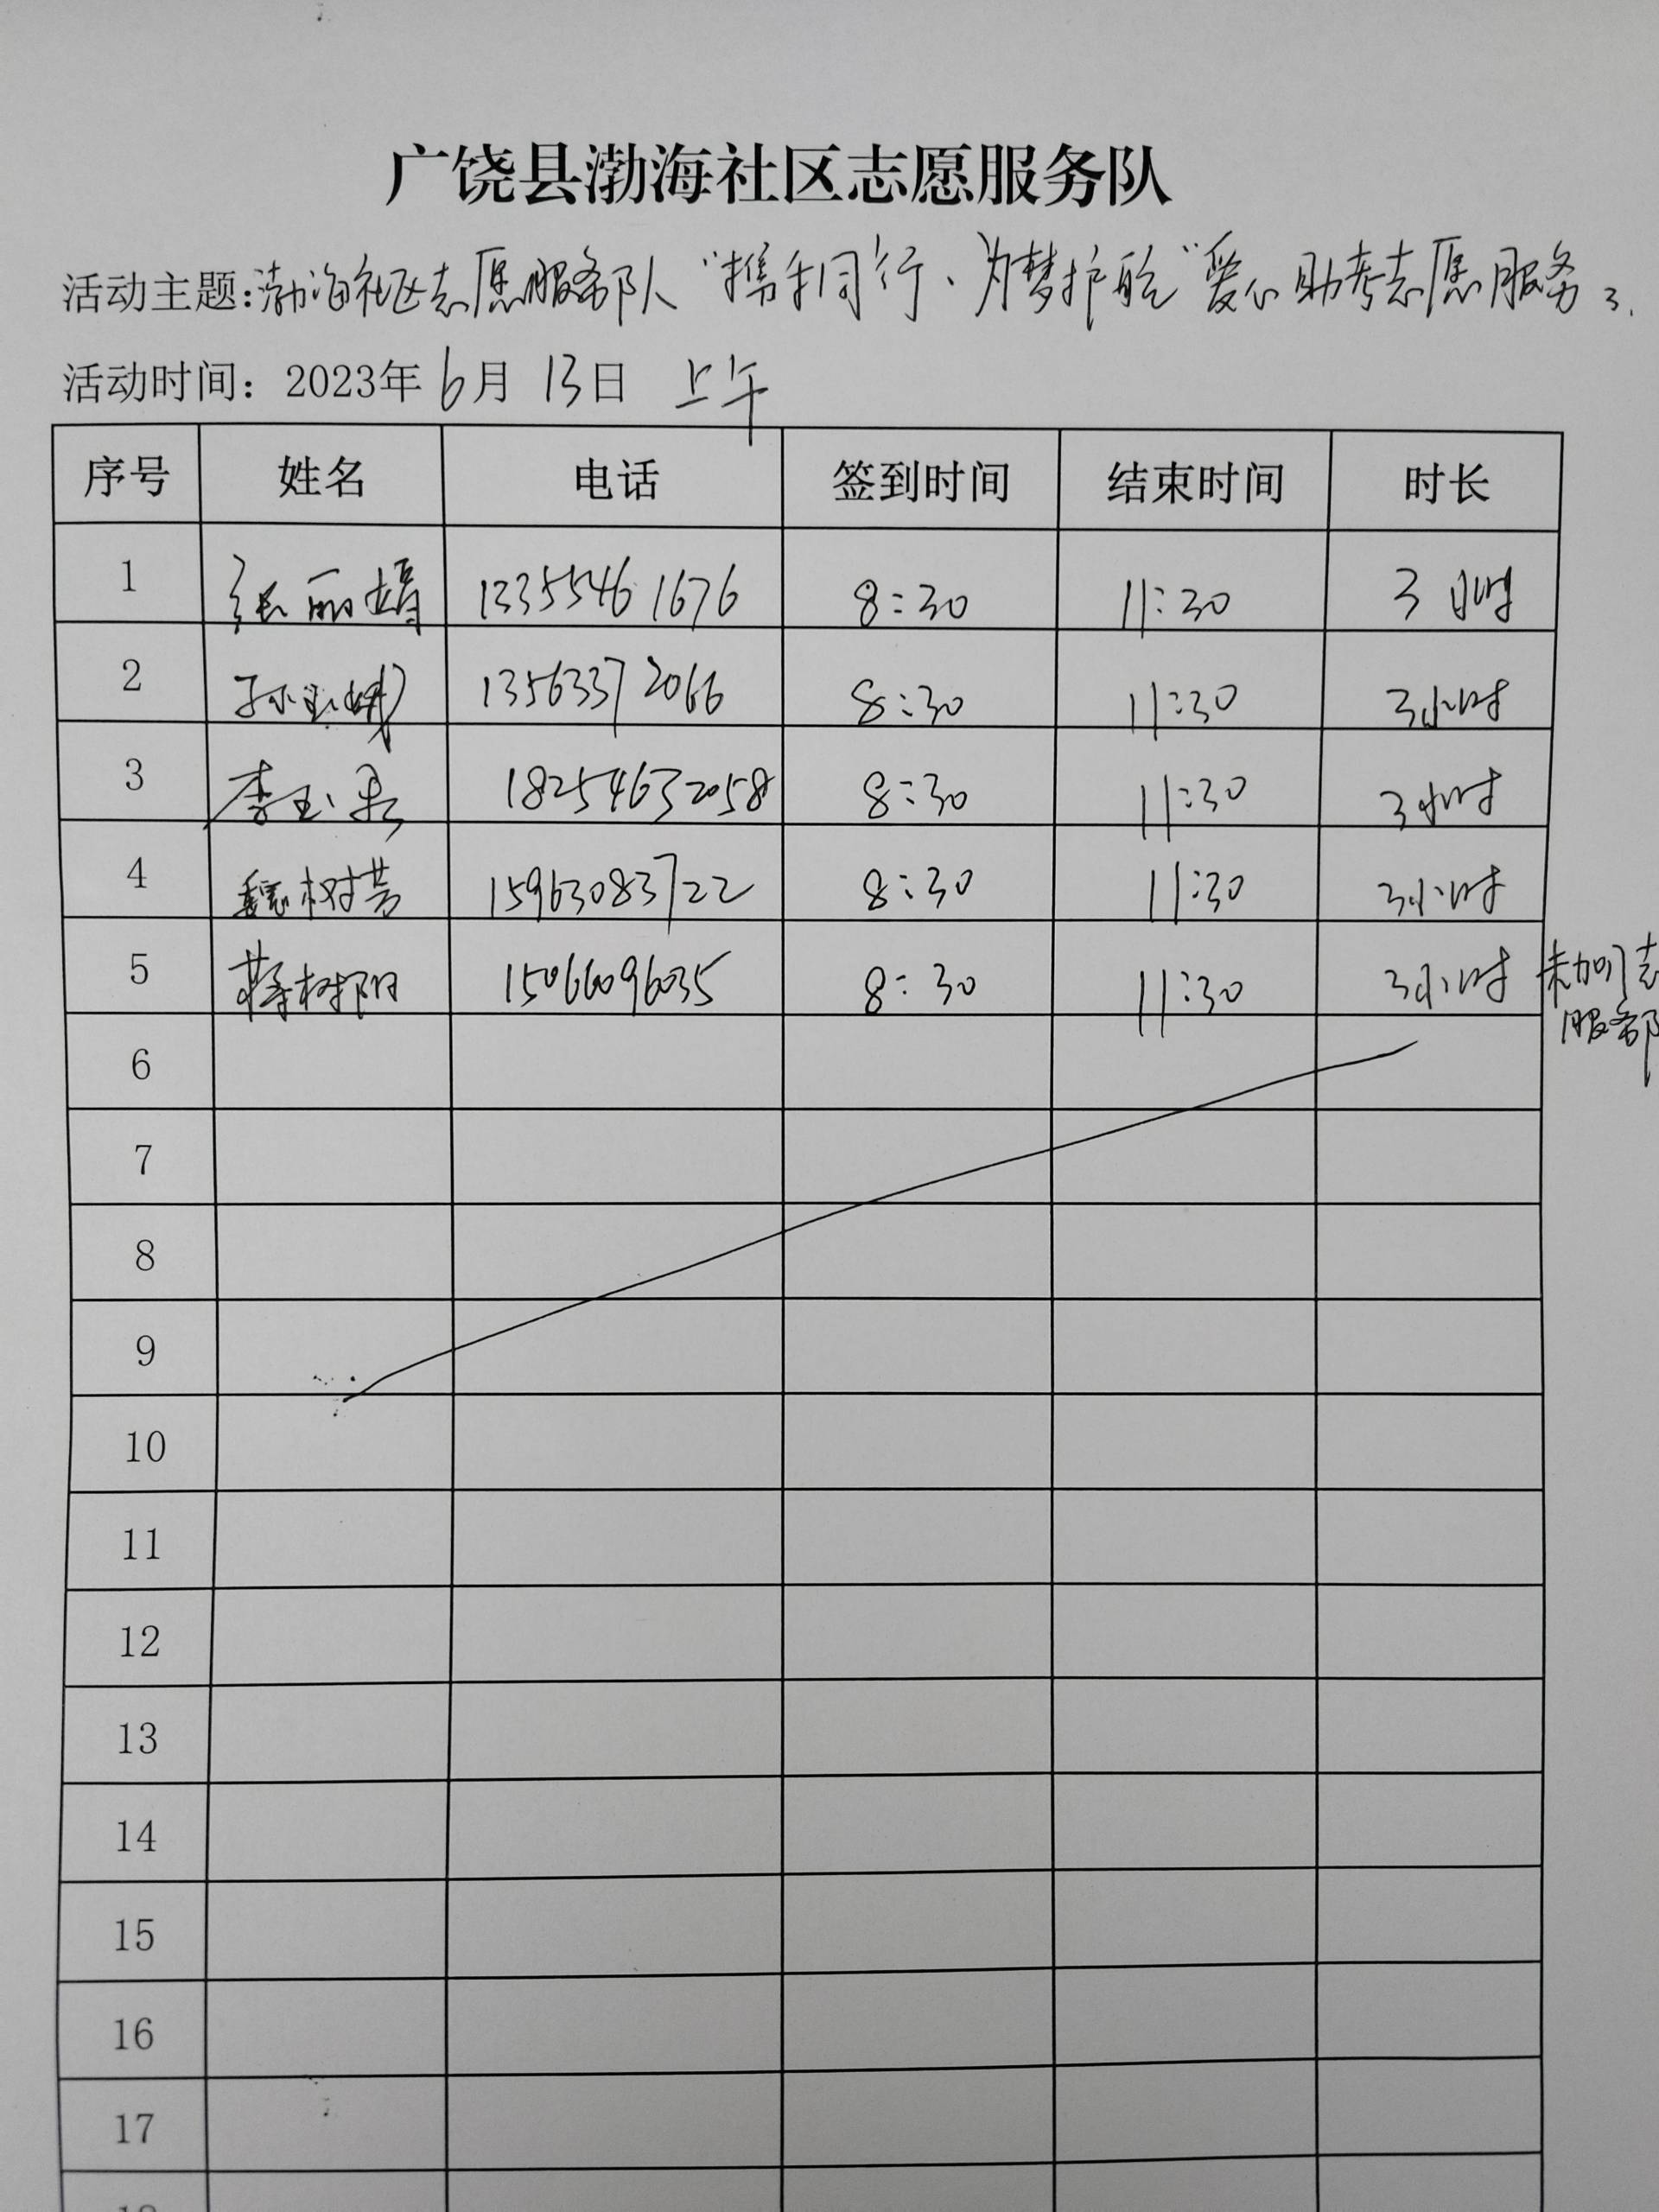 广饶县渤海社区志愿服务队
活动主题:渤海社区志愿服务队“携手同行、为梦护航”爱心助考志愿服务
活动时间：2023年6月13日 上午
序号 姓名 电话 签到时间 结束时间 时长
1 张丽娟 13355461676 8:30 11:30 3小时
2 13563372066 8:30 11:30 3小时
3 18254632058 8:30 11:30 3小时
4 魏树芳 15963083722 8:30 11:30 3小时
5 15066096035 8:30 11:30 3小时 未加入志
服务队
6
7
8
9
10
11
12
13
14
15
16
17